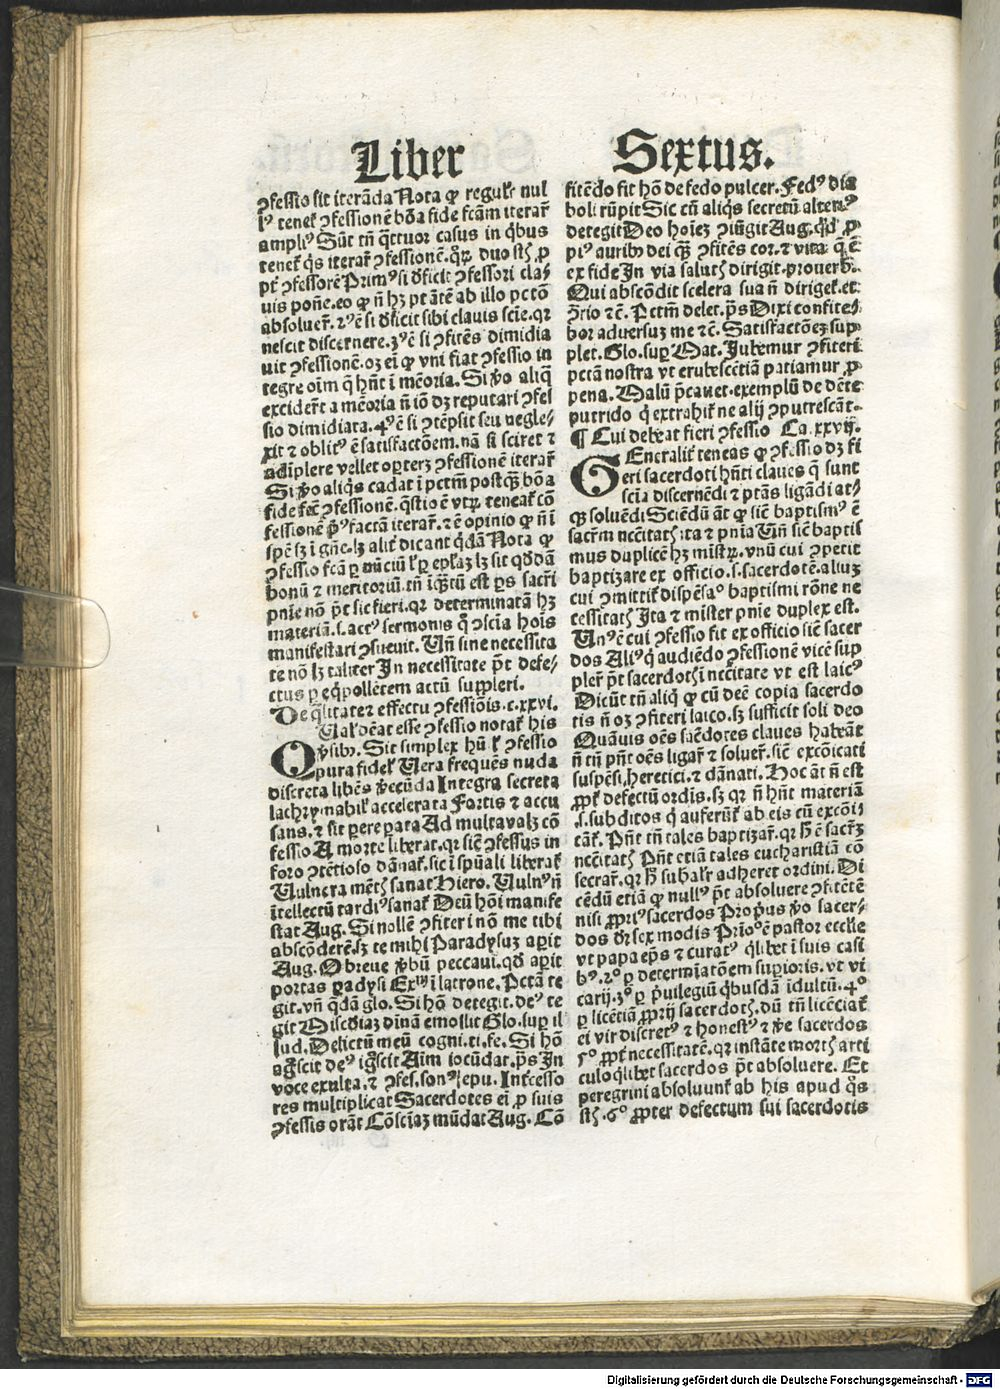 Liber Sextus.
ꝯfessio sit iterāda Nota ꝙ regul' nul
tenet' ꝯfessionē bōa fide fcām iterar̄
ampliꝰ Sūt tn̄ q̄ttuor casus in q̄bus
tenet' q̄s iterar̄ ꝯfessionē. duo
ꝯfessorē Primꝰ si ꝯfessori cla⸗
uis pōne. eo ꝙ n̄ hꝫ ptātē ab illo pctō
absoluer̄. 2ꝰ ē si sibi clauis scīe. qꝛ
nescit discernere. 3ꝰ ē si ꝯfitēs dimidia
uit ꝯfessionē. oꝫ ei ꝙ vni fiat ꝯfessio in
tegre oīm q̄ hn̄t ī mēoria. Si ꝟo aliq̄
exciderēt a mēoria n̄ iō dꝫ reputari ꝯfes
sio dimidiata. 4ꝰ ē si ꝯtēpsit seu negle⸗
xit ⁊ oblitꝰ ē satisfactōem. nā si sciret ⁊
adīplere vellet oꝑterꝫ ꝯfessionē iterar̄
Si ꝟo aliq̄s cadat ī pctm̄ postq̄ꝫ bōa
fide fec̄ ꝯfessionē. q̄stio ē vtꝝ teneat' cō
fessionē pꝰ factā iterar̄. ⁊ ē opinio ꝙ n̄ ī
spē sꝫ ī gn̄e. lꝫ alit' dicant q̄dā Nota ꝙ
ꝯfessio fcā ꝑ nūciū l' ꝑ ep̄l'aꝫ lꝫ sit qd̄dā
bonū ⁊ meritoriū. tn̄ īq̄ꝫtū est ꝑs sacr̄i
pn̄ie nō pt̄ sic fieri. qꝛ determinatā hꝫ
materiā. s. actꝰ sermonis q̄ ꝯscīa hoīs
manifestari ꝯsueuit. Vn̄ sine necessita
te nō lꝫ taliter In necessitate pt̄ defe⸗
ctus ꝑ eq̄pollētem actū suppleri.
De q̄litate ⁊ effectu ꝯfessiōis. c. xxvi.
QUal' dēat esse ꝯfessio notat' his
ꝟsibꝰ. Sit simplex hūl' ꝯfessio
pura fidel' Vera frequēs nuda
discreta libēs ꝟecūda Integra secreta
lachrymabil' accelerata Fortis ⁊ accu
sans. ⁊ sit ꝑere parata Ad multa valꝫ cō
fessio A morte liberat. qꝛ sic̄ ꝯfessus in
foro ꝯtētioso dānat'. sic ī spūali liberat'
Vulnera mētꝭ sanat Hiero. Vulnꝰ n̄
ītellectū tardiꝰ sanat' Deū hōi manife
stat Aug. Si nollē ꝯfiteri nō me tibi
abscōderē. sꝫ te mihi Paradysuꝫ aꝑit
Aug. O breue ꝟbū peccaui. qd̄ aꝑit
portas ꝑadysi Exꝰ ī latrone. Pctā te
git. vn̄ q̄dā glo. Si hō detegit. deꝰ te
git Misc̄diaꝫ diuinā emollit Glo. suꝑ il
lud. Delictū meū cogni. ti. fe. Si hō
agn̄scit deꝰ ign̄scit Aīm iocūdat. ps̄ In
voce exulta. ⁊ ꝯfes. sonꝰ epu. Int'cesso
res multiplicat Sacerdotes ei ꝑ suis
ꝯfessis orāt Cōsciaꝫ mūdat Aug. Cō
fitēdo fit hō de fedo pulcer. Fedꝰ dia
boli rūpit Sic cū aliq̄s secretū alteriꝰ
detegit Deo hoīeꝫ ꝯiūgit Aug. qd̄ ꝓ
piꝰ auribꝰ dei q̄ꝫ ꝯfitēs cor. ⁊ vita q̄ ē
ex fide In via salutꝭ dirigit. prouerb.
Qui abscōdit scelera sua n̄ diriget'. et
⁊c̄. Pctm̄ delet. ps̄ Dixi confite⸗
bor aduersuꝫ me ⁊c̄. Satisfactōeꝫ sup
plet. Glo. suꝑ Mat. Iubemur ꝯfiteri
pctā nostra vt erubescētiā patiamur ꝓ
pena. Malū p̄cauet. exemplū de dēte
putrido q̄ extrahit' ne alij ꝯputrescāt.
¶ Cui debeat fieri ꝯfessio Ca. xxvij.
GEneralit' teneas ꝙ ꝯfessio dꝫ fi
eri sacerdoti hn̄ti claues q̄ sunt
scīa discernēdi ⁊ ptās ligādi at⸗
qꝫ soluēdi Sciēdū āt ꝙ sic̄ baptismꝰ ē
sacr̄m nec̄itatꝭ: ita ⁊ pn̄ia Vn̄ sic̄ baptis
mus duplicē hꝫ mīstꝝ. vnū cui ꝯpetit
baptizare ex officio. s. sacerdotē. aliuꝫ
cui ꝯmittit' dispēsaᵒ baptismi rōne ne
cessitatꝭ Ita ⁊ mīster pn̄ie duplex est.
Vnꝰ ē cui ꝯfessio fit ex officio sic̄ sacer
dos Aliꝰ q̄ audiēdo ꝯfessionē vicē sup
pler̄ pt̄ sacerdotꝭ ī nec̄itate vt est laicꝰ
Dicūt tn̄ aliq̄ ꝙ cū deē copia sacerdo
tis n̄ oꝫ ꝯfiteri laico. sꝫ sufficit soli deo
Quāuis oēs sac̄dotes claues habeāt
n̄ tn̄ pn̄t oēs ligar̄ ⁊ soluer̄. sic̄ excōicati
suspēsi, heretici. ⁊ dānati. Hoc āt n̄ est
ꝓpt' defectū ordīs. sꝫ qꝛ n̄ hn̄t materiā
.s. subditos q̄ auferūt' ab eis cū excōi
cāt'. Pn̄t tn̄ tales baptizar̄. qꝛ ē sacr̄ꝫ
nec̄itatꝭ Pn̄t etiā tales eucharistiā cō
secrar̄. qꝛ adheret ordini. Di
cēdū etiā ꝙ nullꝰ pt̄ absoluere ꝯfitētē
nisi ꝓpriꝰ sacerdos Propriꝰ ꝟo sacer⸗
dos dr̄ sex modis Prīo ē pastor ecclīe
vt papa ep̄s ⁊ curatꝰ q̄libet ī suis casi
bꝰ. 2ᵒ ꝑ determīatōem suꝑioris. vt vi
carij. 3ᵒ ꝑ p̄uilegiū q̄busdā īdultū. 4ᵒ
ꝑ licētiā ꝓprij sacerdotꝭ. dū tn̄ licēciat'
ei vir discretꝰ ⁊ honestꝰ ⁊ ꝟe sacerdos
5ᵒ ꝓpt' necessitatē. qꝛ instāte mortꝭ arti
culo q̄libet sacerdos pt̄ absoluere. Et
peregrini absoluunt' ab his apud q̄s
sꝭ. 6ᵒ ꝓpter defectum sui sacerdotis
Digitalisierung gefördert durch die Deutsche Forschungsgemeinschaft - DFG